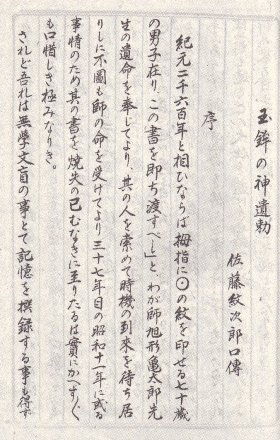 玉鉾の神遺勅
佐藤紋次郎口傳
序
紀元二千六百年と相ひならば拇指に⊙の紋を印せる七十歳
の男子在り、この書を即ち渡すべし」と、わが師旭形亀太郎先
生の遺命を奉してより、其の人を索めて時機の到來を待ち居
りしに不圖も師の命を受けてより三十七年目の昭和十一年に或る
事情のため其の書を焼失の已むなきに至りたるは實にかへすぐ
も口惜しき極みなりき。
されど吾れは無學文盲の事とて記憶を撰録する事も得ず